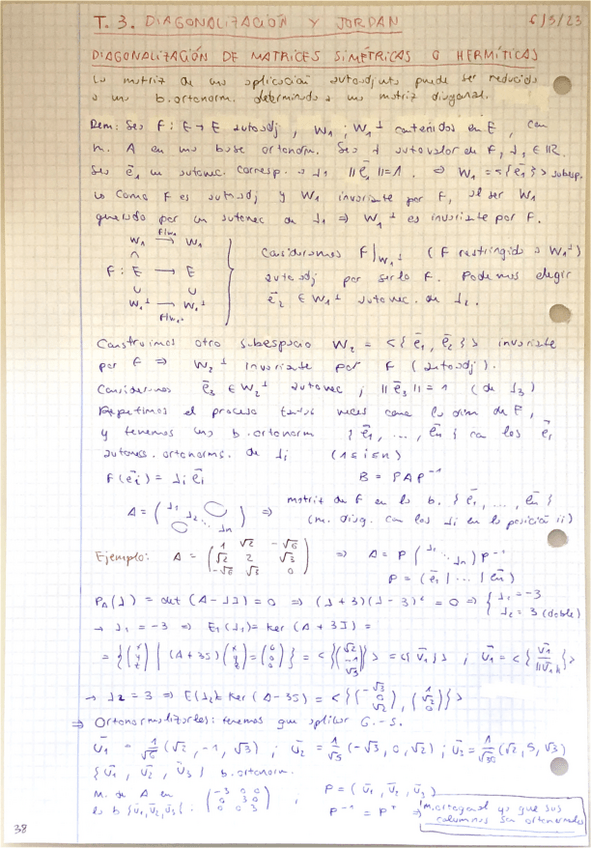 T. 3. DIAGONALIZACIÓN Y JORDAN 6/3/23
DIAGONALIZACIÓN DE MATRICES SIMÉTRICAS O HERMÍTICAS
La matriz de una aplicación autoadjunta puede ser reducida
a una b. ortonorm. determinada a una matriz diagonal.
Dem: Sea F: E → E autoadj, W₁; W₁⊥ contenidos en E, con
m. A en una base ortonorm. Sea λ autovalor de F, λ₁ ∈ ℝ.
Sea ē₁ un autovec. corresp. a λ₁ ||ē₁||=1. ⇒ W₁ = <{ē₁}> subesp.
Como F es autoadj y W₁ invariante por F, al ser W₁
generado por un autovec de λ₁ ⇒ W₁⊥ es invariante por F.
W₁ →(F|w₁) W₁
∩
F: E → E
∪ ∪
W₁⊥ →(F|w₁⊥) W₁⊥
Consideramos F|w₁⊥ (F restringida a W₁⊥)
autoadj por serlo F. Podemos elegir
ē₂ ∈ W₁⊥ autovec. de λ₂.
Construimos otro subespacio W₂ = <{ē₁, ē₂}> invariante
por F ⇒ W₂⊥ invariante por F (autoadj).
Consideramos ē₃ ∈ W₂⊥ autovec; ||ē₃|| = 1 (de λ₃)
Repetimos el proceso tantas veces como la dim de E,
y tenemos una b. ortonorm {ē₁, ..., ēn} con los ēᵢ
autovec. ortonorms. de λᵢ (1≤i≤n)
F(ēᵢ) = λᵢēᵢ B = PAP⁻¹
A = (λ₁ λ₂ ... λn) ⇒ matriz de F en la b. {ē₁, ..., ēn}
(m. diag. con los λi en la posición ii)
Ejemplo: A = (1 √2 -√6 / √2 2 √3 / -√6 √3 0) ⇒ A = P (λ₁ ... λn) P⁻¹
P = (ē₁ | ... | ēn)
P_A(λ) = det (A - λI) = 0 ⇒ (λ+3)(λ-3)² = 0 ⇒ { λ₁ = -3
λ₂ = 3 (doble)
→ λ₁ = -3 ⇒ E₁(λ₁) = ker (A + 3I) =
= {(x y z) | (A+3I)(x y z) = (0 0 0)} = <{(√2 -1 √3)}> = <{v̄₁}> ; ū₁ = <{v̄₁/||v̄₁||}>
→ λ₂ = 3 ⇒ E(λ₂) = ker (A-3I) = <{(-√3 0 √2), (1 √2 0)}>
⇒ Ortonormalizarlos: tenemos que aplicar G.-S.
ū₁ = 1/√6 (√2, -1, √3) ; ū₂ = 1/√5 (-√3, 0, √2) ; ū₃ = 1/√30 (√2, 5, √3)
{ū₁, ū₂, ū₃} b. ortonorm.
M. de A en
la b {ū₁, ū₂, ū₃}: (-3 0 0 / 0 3 0 / 0 0 3) ; P = (ū₁, ū₂, ū₃)
P⁻¹ = Pᵗ ⇒ M. ortogonal ya que sus
columnas son ortonormales
38